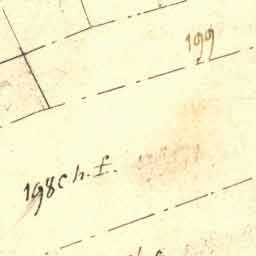 199
198 c h. f.